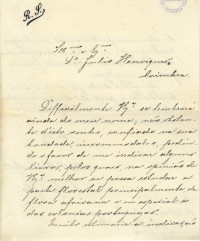 R. S.
Ill.mo e Ex.mo
Sr. Julio Henriques
Coimbra
Difficilmente V. Ex.ª se lembrará
ainda do meu nome; não obstante
d'isto venho, confiado na sua
bondade, incommodal-o, pedindo
o favor de me indicar alguns
livros, pelos quaes na opinião de
V. Ex.ª melhor se possa estudar a
parte florestal principalmente da
flora africana e em especial a
das colonias portuguezas.
Muito estimaria a indicação